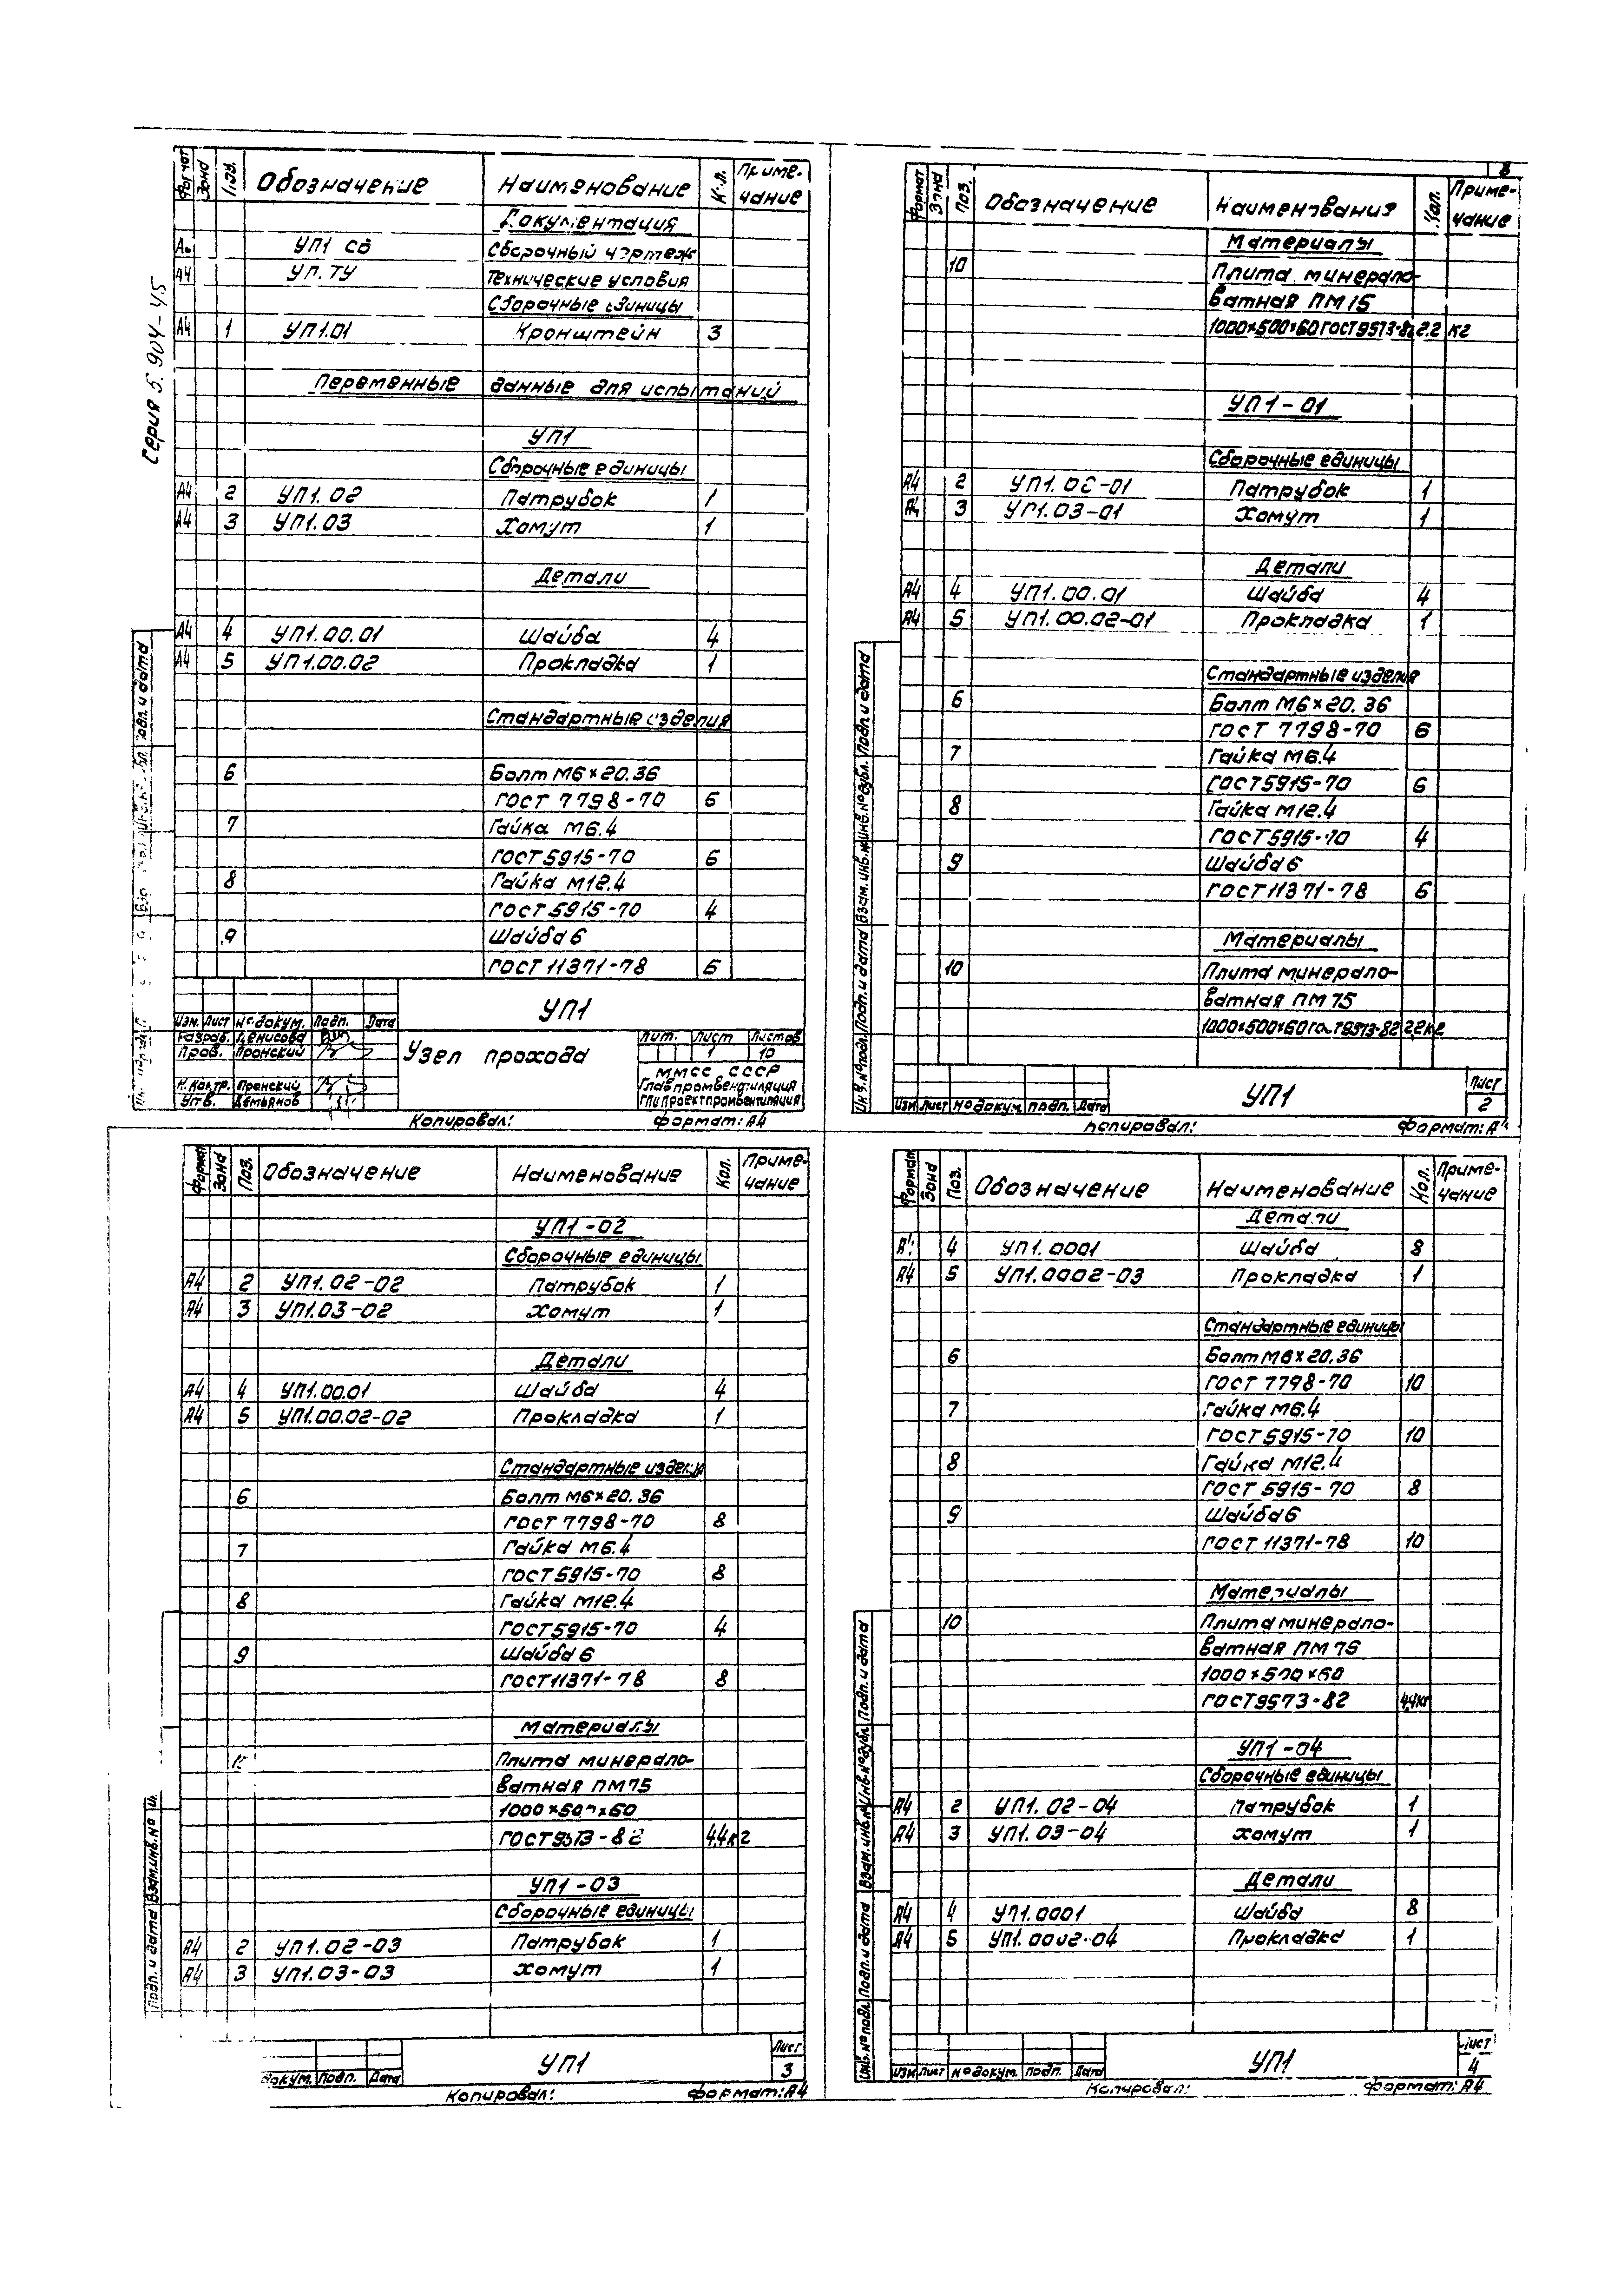 Серия 5.904-45
Формат Зона Поз. Обозначение Наименование Кол. Приме-
чание
Документация
УП1 СБ Сборочный чертеж
А4 УП. ТУ Технические условия
Сборочные единицы
А4 1 УП1.01 Кронштейн 3
Переменные данные для испытаний
УП1
Сборочные единицы
А4 2 УП1.02 Патрубок 1
А4 3 УП1.03 Хомут 1
Детали
А4 4 УП1.00.01 Шайба 4
А4 5 УП1.00.02 Прокладка 1
Стандартные изделия
6 Болт М6×20.36
ГОСТ 7798-70 6
7 Гайка М6.4
ГОСТ 5915-70 6
8 Гайка М12.4
ГОСТ 5915-70 4
9 Шайба 6
ГОСТ 11371-78 6
УП1
Изм. Лист № докум. Подп. Дата
Разраб. Денисова
Пров. Пронский
Н. Контр. Пронский
Утв. Демьянов
Узел прохода
Лит. Лист Листов
1 10
ММСС СССР
Главпромвентиляция
ГПИ Проектпромвентиляция
Копировал: Формат: А4
Подп. и дата
8
Формат Зона Поз. Обозначение Наименования Кол. Приме-
чание
Материалы
10 Плита минерало-
ватная ПМ 15
1000×500×60 ГОСТ 9573-82 2.2 кг
УП1-01
Сборочные единицы
А4 2 УП1.02-01 Патрубок 1
А4 3 УП1.03-01 Хомут 1
Детали
А4 4 УП1.00.01 Шайба 4
А4 5 УП1.00.02-01 Прокладка 1
Стандартные изделия
6 Болт М6×20.36
ГОСТ 7798-70 6
7 Гайка М6.4
ГОСТ 5915-70 6
8 Гайка М12.4
ГОСТ 5915-70 4
9 Шайба 6
ГОСТ 11371-78 6
Материалы
10 Плита минерало-
ватная ПМ 75
1000×500×60 ГОСТ 9573-82 2,2 кг
УП1
Лист
2
Изм Лист № докум. Подп. Дата
Копировал: Формат: А4
Инв. № подл. Подп. и дата Взам. инв. № Инв. № дубл. Подп. и дата
Формат Зона Поз. Обозначение Наименование Кол. Приме-
чание
УП1-02
Сборочные единицы
А4 2 УП1.02-02 Патрубок 1
А4 3 УП1.03-02 Хомут 1
Детали
А4 4 УП1.00.01 Шайба 4
А4 5 УП1.00.02-02 Прокладка 1
Стандартные изделия
6 Болт М6×20.36
ГОСТ 7798-70 8
7 Гайка М6.4
ГОСТ 5915-70 8
8 Гайка М12.4
ГОСТ 5915-70 4
9 Шайба 6
ГОСТ 11371-78 8
Материалы
Плита минерало-
ватная ПМ 75
1000×500×60
ГОСТ 9573-82 4,4 кг
УП1-03
Сборочные единицы
А4 2 УП1.02-03 Патрубок 1
А4 3 УП1.03-03 Хомут 1
УП1
Лист
3
докум. Подп. Дата
Копировал: Формат: А4
Подп. и дата Взам. инв. №
Формат Зона Поз. Обозначение Наименование Кол. Приме-
чание
Детали
4 УП1.0001 Шайба 8
А4 5 УП1.0002-03 Прокладка 1
Стандартные единицы
6 Болт М6×20.36
ГОСТ 7798-70 10
7 Гайка М6.4
ГОСТ 5915-70 10
8 Гайка М12.4
ГОСТ 5915-70 8
9 Шайба 6
ГОСТ 11371-78 10
Материалы
10 Плита минерало-
ватная ПМ 75
1000×500×60
ГОСТ 9573-82 4,4кг
УП1-04
Сборочные единицы
А4 2 УП1.02-04 Патрубок 1
А4 3 УП1.03-04 Хомут 1
Детали
А4 4 УП1.0001 Шайба 8
А4 5 УП1.0002-04 Прокладка 1
УП1
Лист
4
Изм Лист № докум. Подп. Дата
Копировал: Формат: А4
Инв. № подл. Подп. и дата Взам. инв. № Инв. № дубл. Подп. и дата